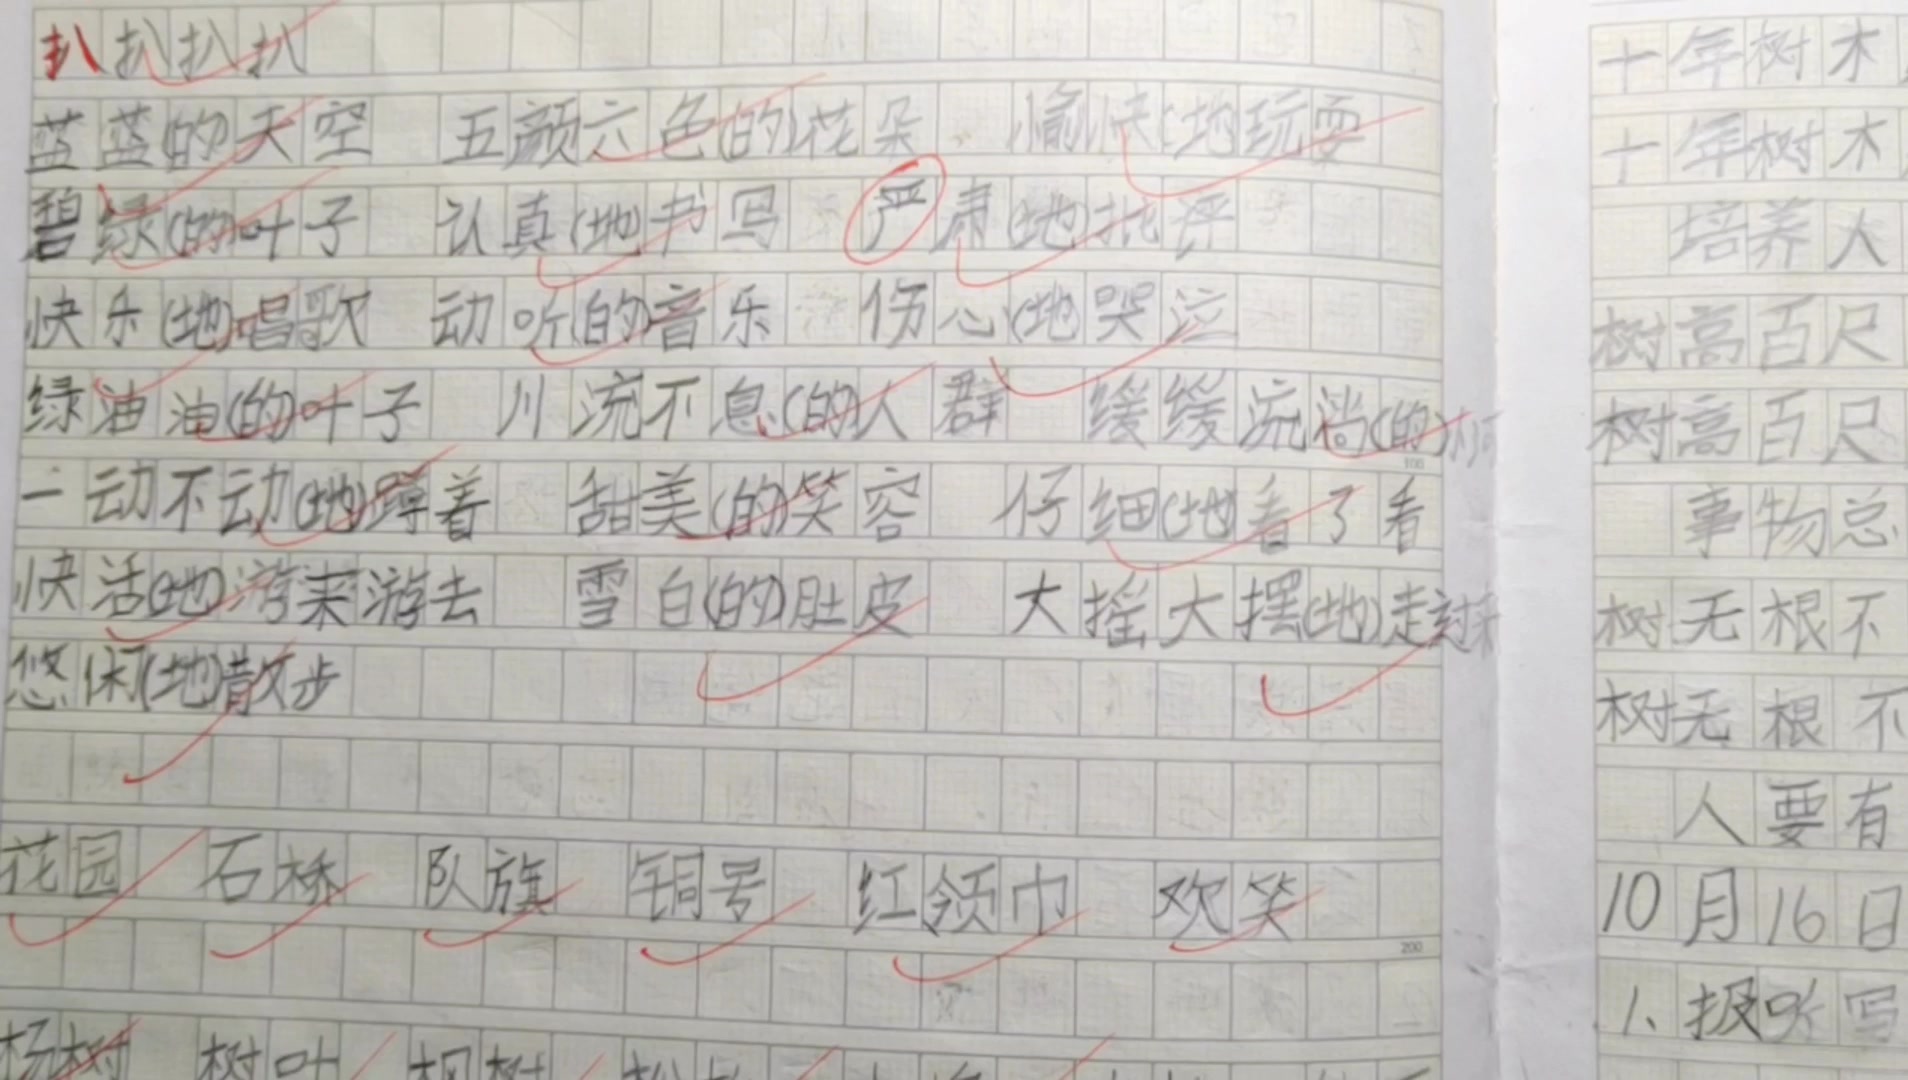 扒扒扒扒
蓝蓝(的)天空 五颜六色(的)花朵 愉快(地)玩耍
碧绿(的)叶子 认真(地)书写 严肃(地)批评
快乐(地)唱歌 动听(的)音乐 伤心(地)哭泣
绿油油(的)叶子 川流不息(的)人群 缓缓流淌(的)河
一动不动(地)蹲着 甜美(的)笑容 仔细(地)看了看
快活(地)游来游去 雪白(的)肚皮 大摇大摆(地)走过来
悠闲(地)散步
100
花园 石桥 队旗 铜号 红领巾 欢笑
200
杨树 树叶 枫树
十年树木
十年树木
培养人
树高百尺
树高百尺
事物总
树无根不
树无根不
人要有
10月16日
1、报听写